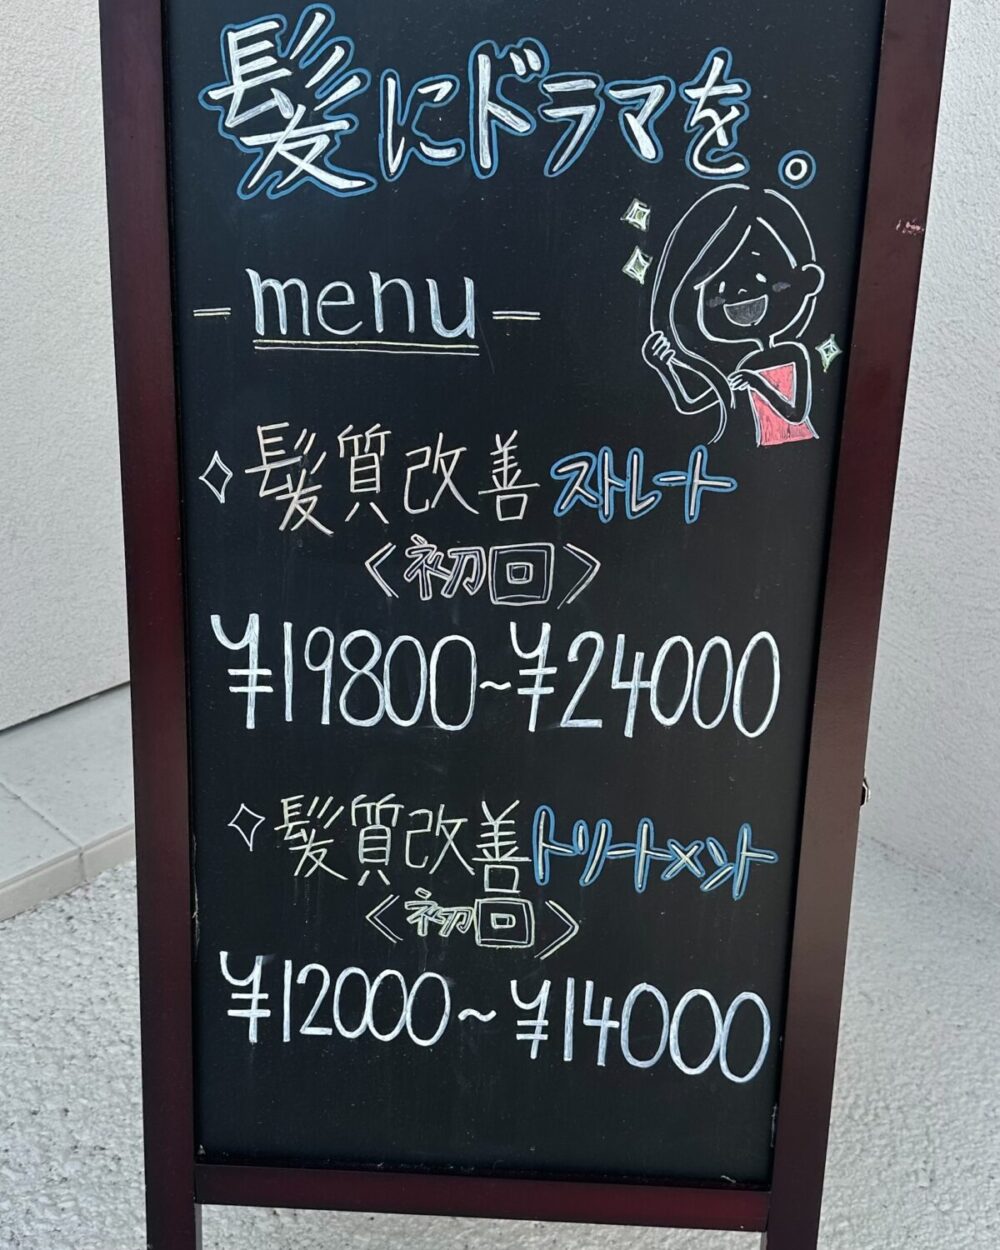 髪にドラマを。
menu
髪質改善ストレート
〈初回〉
¥19800~¥24000
髪質改善トリートメント
〈初回〉
¥12000~¥14000